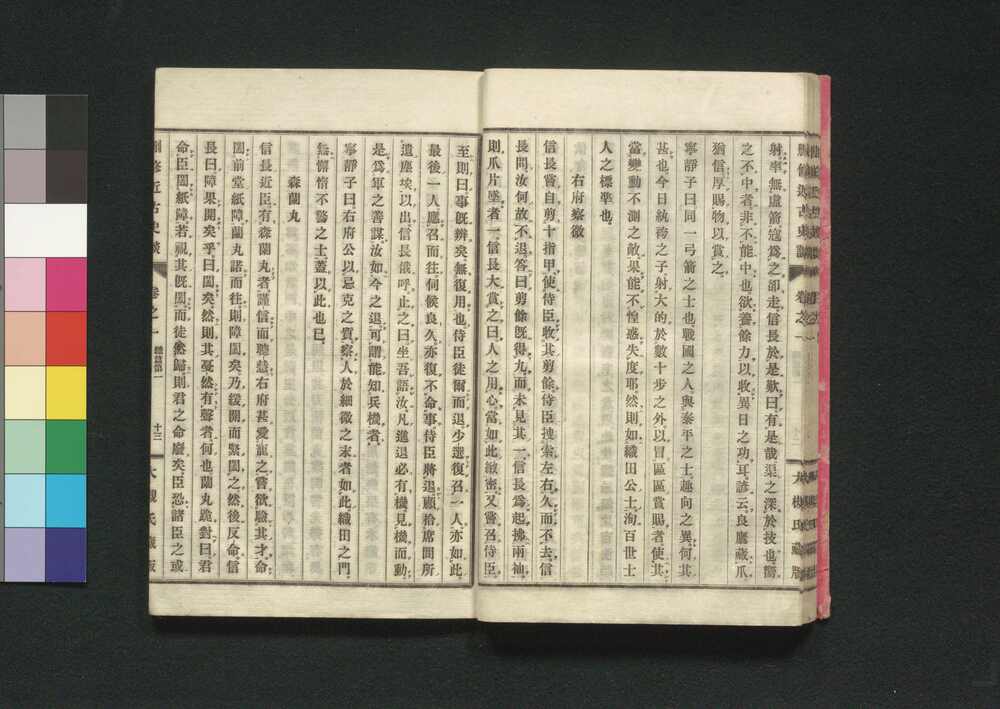 射率無虛箭寇爲之卻走信長於是歎曰有是哉渠之深於技也嚮
之不中者非不能中也欲養餘力以收異日之功耳諺云良鷹藏爪
猶信厚賜物以賞之
寧靜子曰同一弓箭之士也戰國之人與泰平之士趣向之異何其
甚也今日紈袴之子射大的於數十步之外以冒區區賞賜者使其
當變動不測之敵果能不惶惑失度耶然則如織田公士洵百世士
人之標準也
右府察微
信長嘗自剪十指甲使侍臣收其剪餘侍臣搜索左右久而不去信
長問汝何故不退答曰剪餘旣得九而未見其一信長爲起拂兩袖
則爪片墜者一信長大賞之曰人之用心當如此緻密又嘗召侍臣
至則曰事旣辨矣無復用也侍臣徒爾而退少選復召一人亦如此
最後一人應召而往伺候良久亦復不命事侍臣將退顧拾席間所
遺塵埃以出信長俄呼止之曰坐吾語汝凡進退必有機見機而動
是爲軍之善謀汝如今之退可謂能知兵機者
寧靜子曰右府公以忌克之資察人於細微之末者如此織田之門
無懈惰不警之士蓋以此也已
森蘭丸
信長近臣有森蘭丸者謹信而聰慧右府甚愛寵之嘗欲驗其才命
闔前堂紙障蘭丸諾而往則障闔矣乃緩開而緊闔之然後反命信
長曰障果開矣乎曰闔矣然則其戞然有聲者何也蘭丸跪對曰君
命臣闔紙障若視其旣闔而徒然歸則君之命廢矣臣恐諸臣之或
刪修近古史談 卷之一 織篇第一 十三 大槻氏藏版